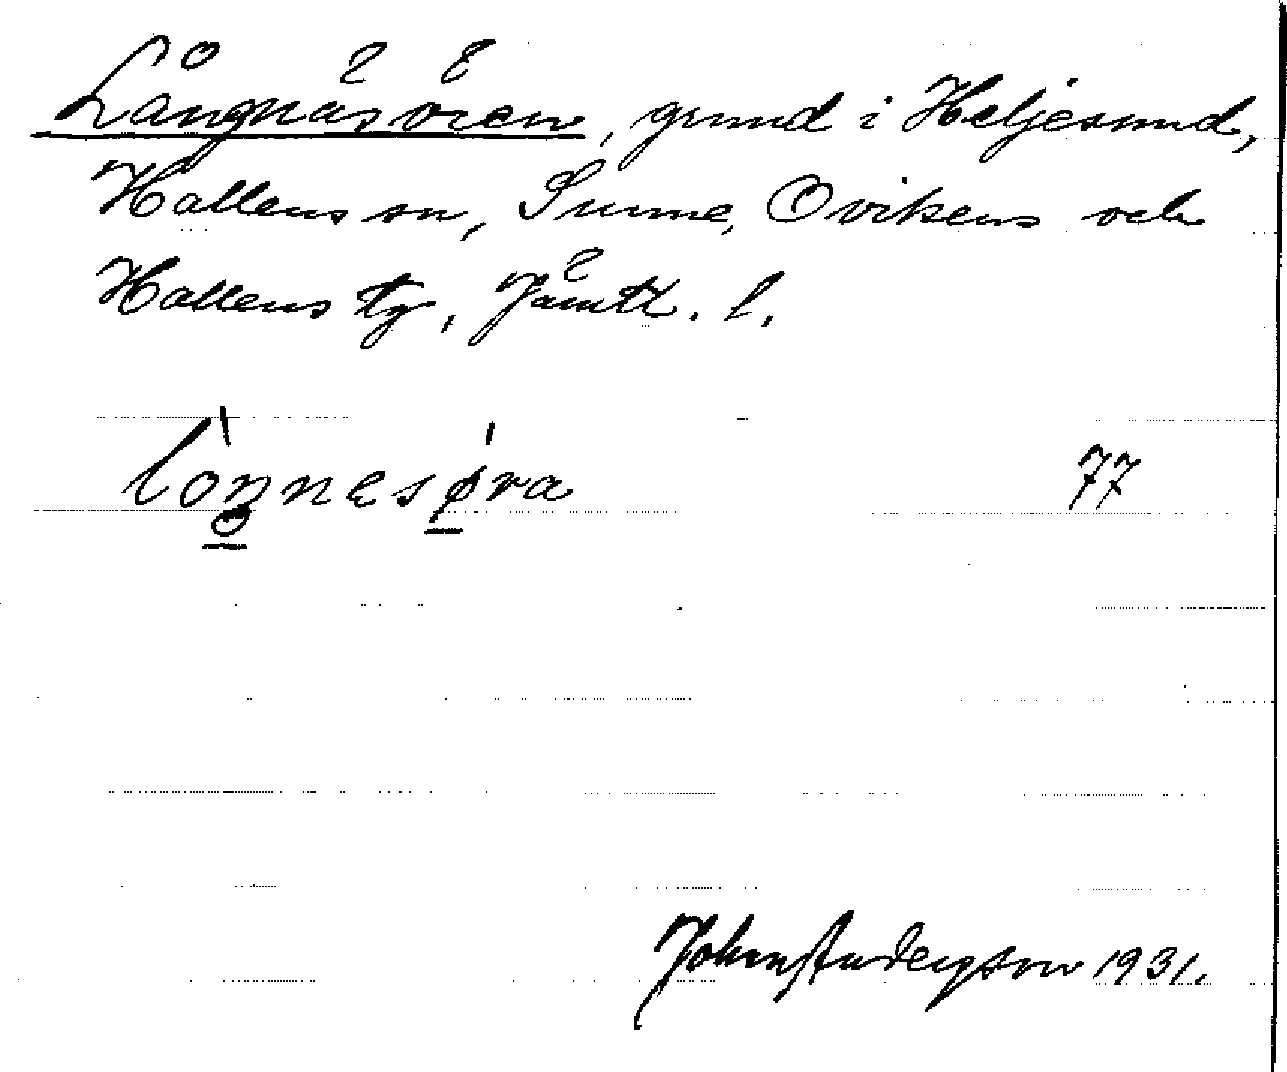 Långnäsören, grund i Heljesund,
Hallens sn, Sunne, Ovikens och
Hallens tg, Jämtl. l.
lònnesǿra 77
John Anderson 1931.